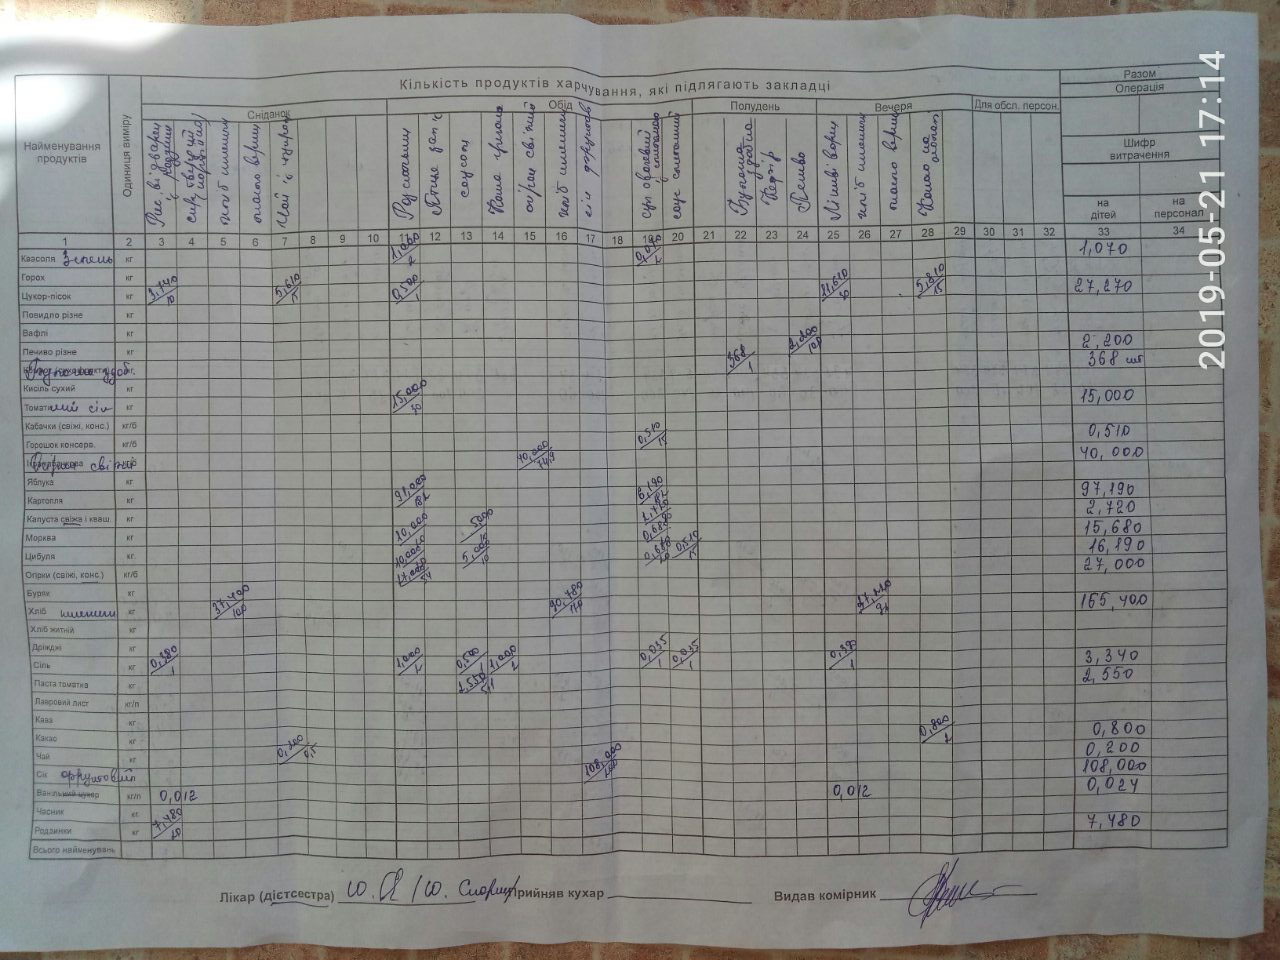 Кількість продуктів харчування, які підлягають закладці
Разом
Операція
Найменування продуктів
Одиниця виміру
Сніданок
Обід
Полудень
Вечеря
Для обсл. персон.
Шифр витрачення
на дітей
на персонал
сир твердий
хліб пшеничн
масло верш
Чай з цукром
соусом
огірок свіжий
хліб пшеничн
сік фруктов
Булочка здобна
Кефір
Печиво
хліб пшеничн
масло верш
Какао на молоці
1 2 3 4 5 6 7 8 9 10 11 12 13 14 15 16 17 18 19 20 21 22 23 24 25 26 27 28 29 30 31 32 33 34
Квасоля Зелень кг 1,000/2 0,070/2 1,070
Горох кг
Цукор-пісок кг 3,740/10 5,610/15 0,500/1 11,610/30 5,810/15 27,270
Повидло різне кг
Вафлі кг
Печиво різне кг 2,200/100 2,200
368/1 368 шт
Кисіль сухий кг
Томатний сік кг 15,000/30 15,000
Кабачки (свіжі, конс.) кг/б
Горошок консерв. кг/б 0,510/15 0,510
Огірки свіжі 40,000/149 40,000
Яблука кг
Картопля кг 91,000/182 6,190/182 97,190
Капуста свіжа і кваш кг 2,720
Морква кг 10,000 5,000/10 0,680 15,680
Цибуля кг 10,000 5,000/10 0,680/20 0,510/15 16,190
Огірки (свіжі, конс.) кг/б
Буряк кг 27,000/54 27,000
Хліб пшеничн кг 37,400/100 90,780/170 37,220 165,400
Хліб житній кг
Дріжджі кг
Сіль кг 0,380/1 1,000/2 0,500/1 1,000/2 0,035/1 0,035/1 0,390/1 3,340
Паста томатна кг 2,550/5,1 2,550
Лавровий лист кг/п
Кава кг
Какао кг 0,800/2 0,800
Чай кг 0,200/0,5 0,200
Сік фруктовий 108,000/200 108,000
Ванільний цукор кг/п 0,012 0,012 0,024
Часник кг
Родзинки кг 7,480/20 7,480
Всього найменувань
Лікар (дієтсестра)
Прийняв кухар
Видав комірник
2019-05-21 17:14